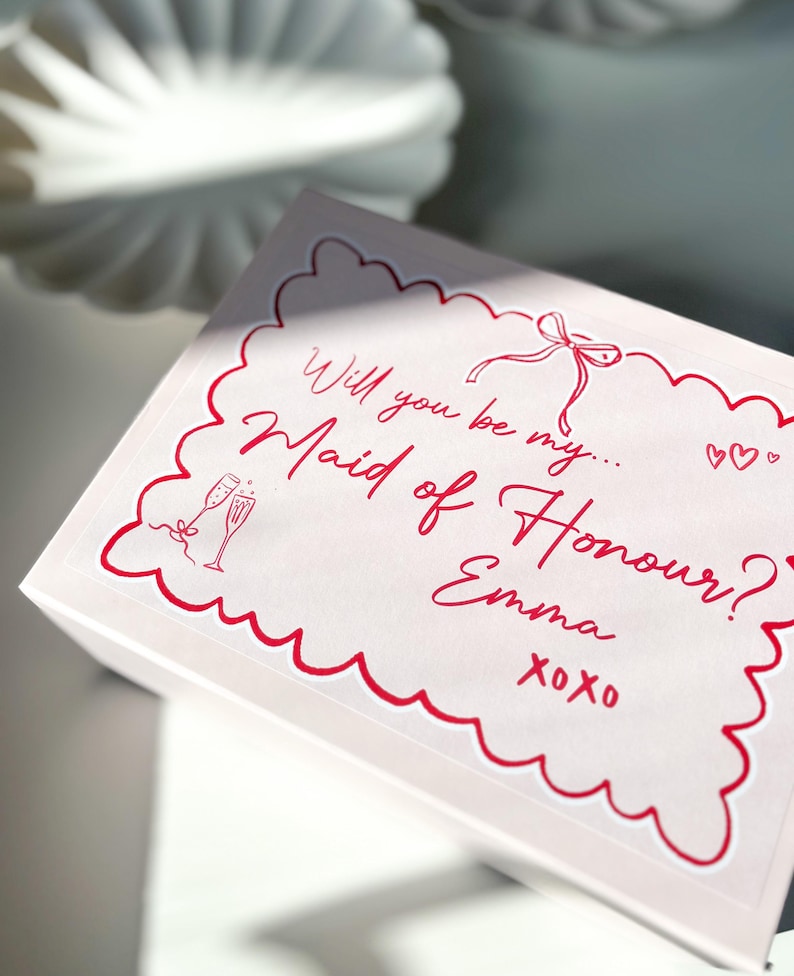 Will you be my...
Maid of Honour?
Emma
xoxo